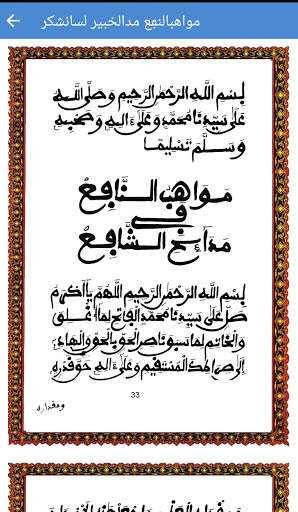 مواهبالنفع مدالخبير لسانشكر
بِسْمِ اللَّهِ الرَّحْمَٰنِ الرَّحِيمِ وَصَلَّى اللَّهُ
عَلَىٰ سَيِّدِنَا مُحَمَّدٍ وَعَلَىٰ ءَالِهِ وَصَحْبِهِ
وَسَلَّمَ تَسْلِيمًا
مَوَاهِبُ النَّافِعُ
فِي
مَدَائِحِ الشَّافِعُ
بِسْمِ اللَّهِ الرَّحْمَٰنِ الرَّحِيمِ اللَّهُمَّ
صَلِّ عَلَىٰ سَيِّدِنَا مُحَمَّدٍ الْفَاتِحِ لِمَا أُغْلِقَ
وَالْخَاتِمِ لِمَا سَبَقَ نَاصِرِ الْحَقِّ بِالْحَقِّ وَالْهَادِي
إِلَىٰ صِرَاطِكَ الْمُسْتَقِيمِ وَعَلَىٰ ءَالِهِ حَقَّ قَدْرِهِ
33
ومقداره